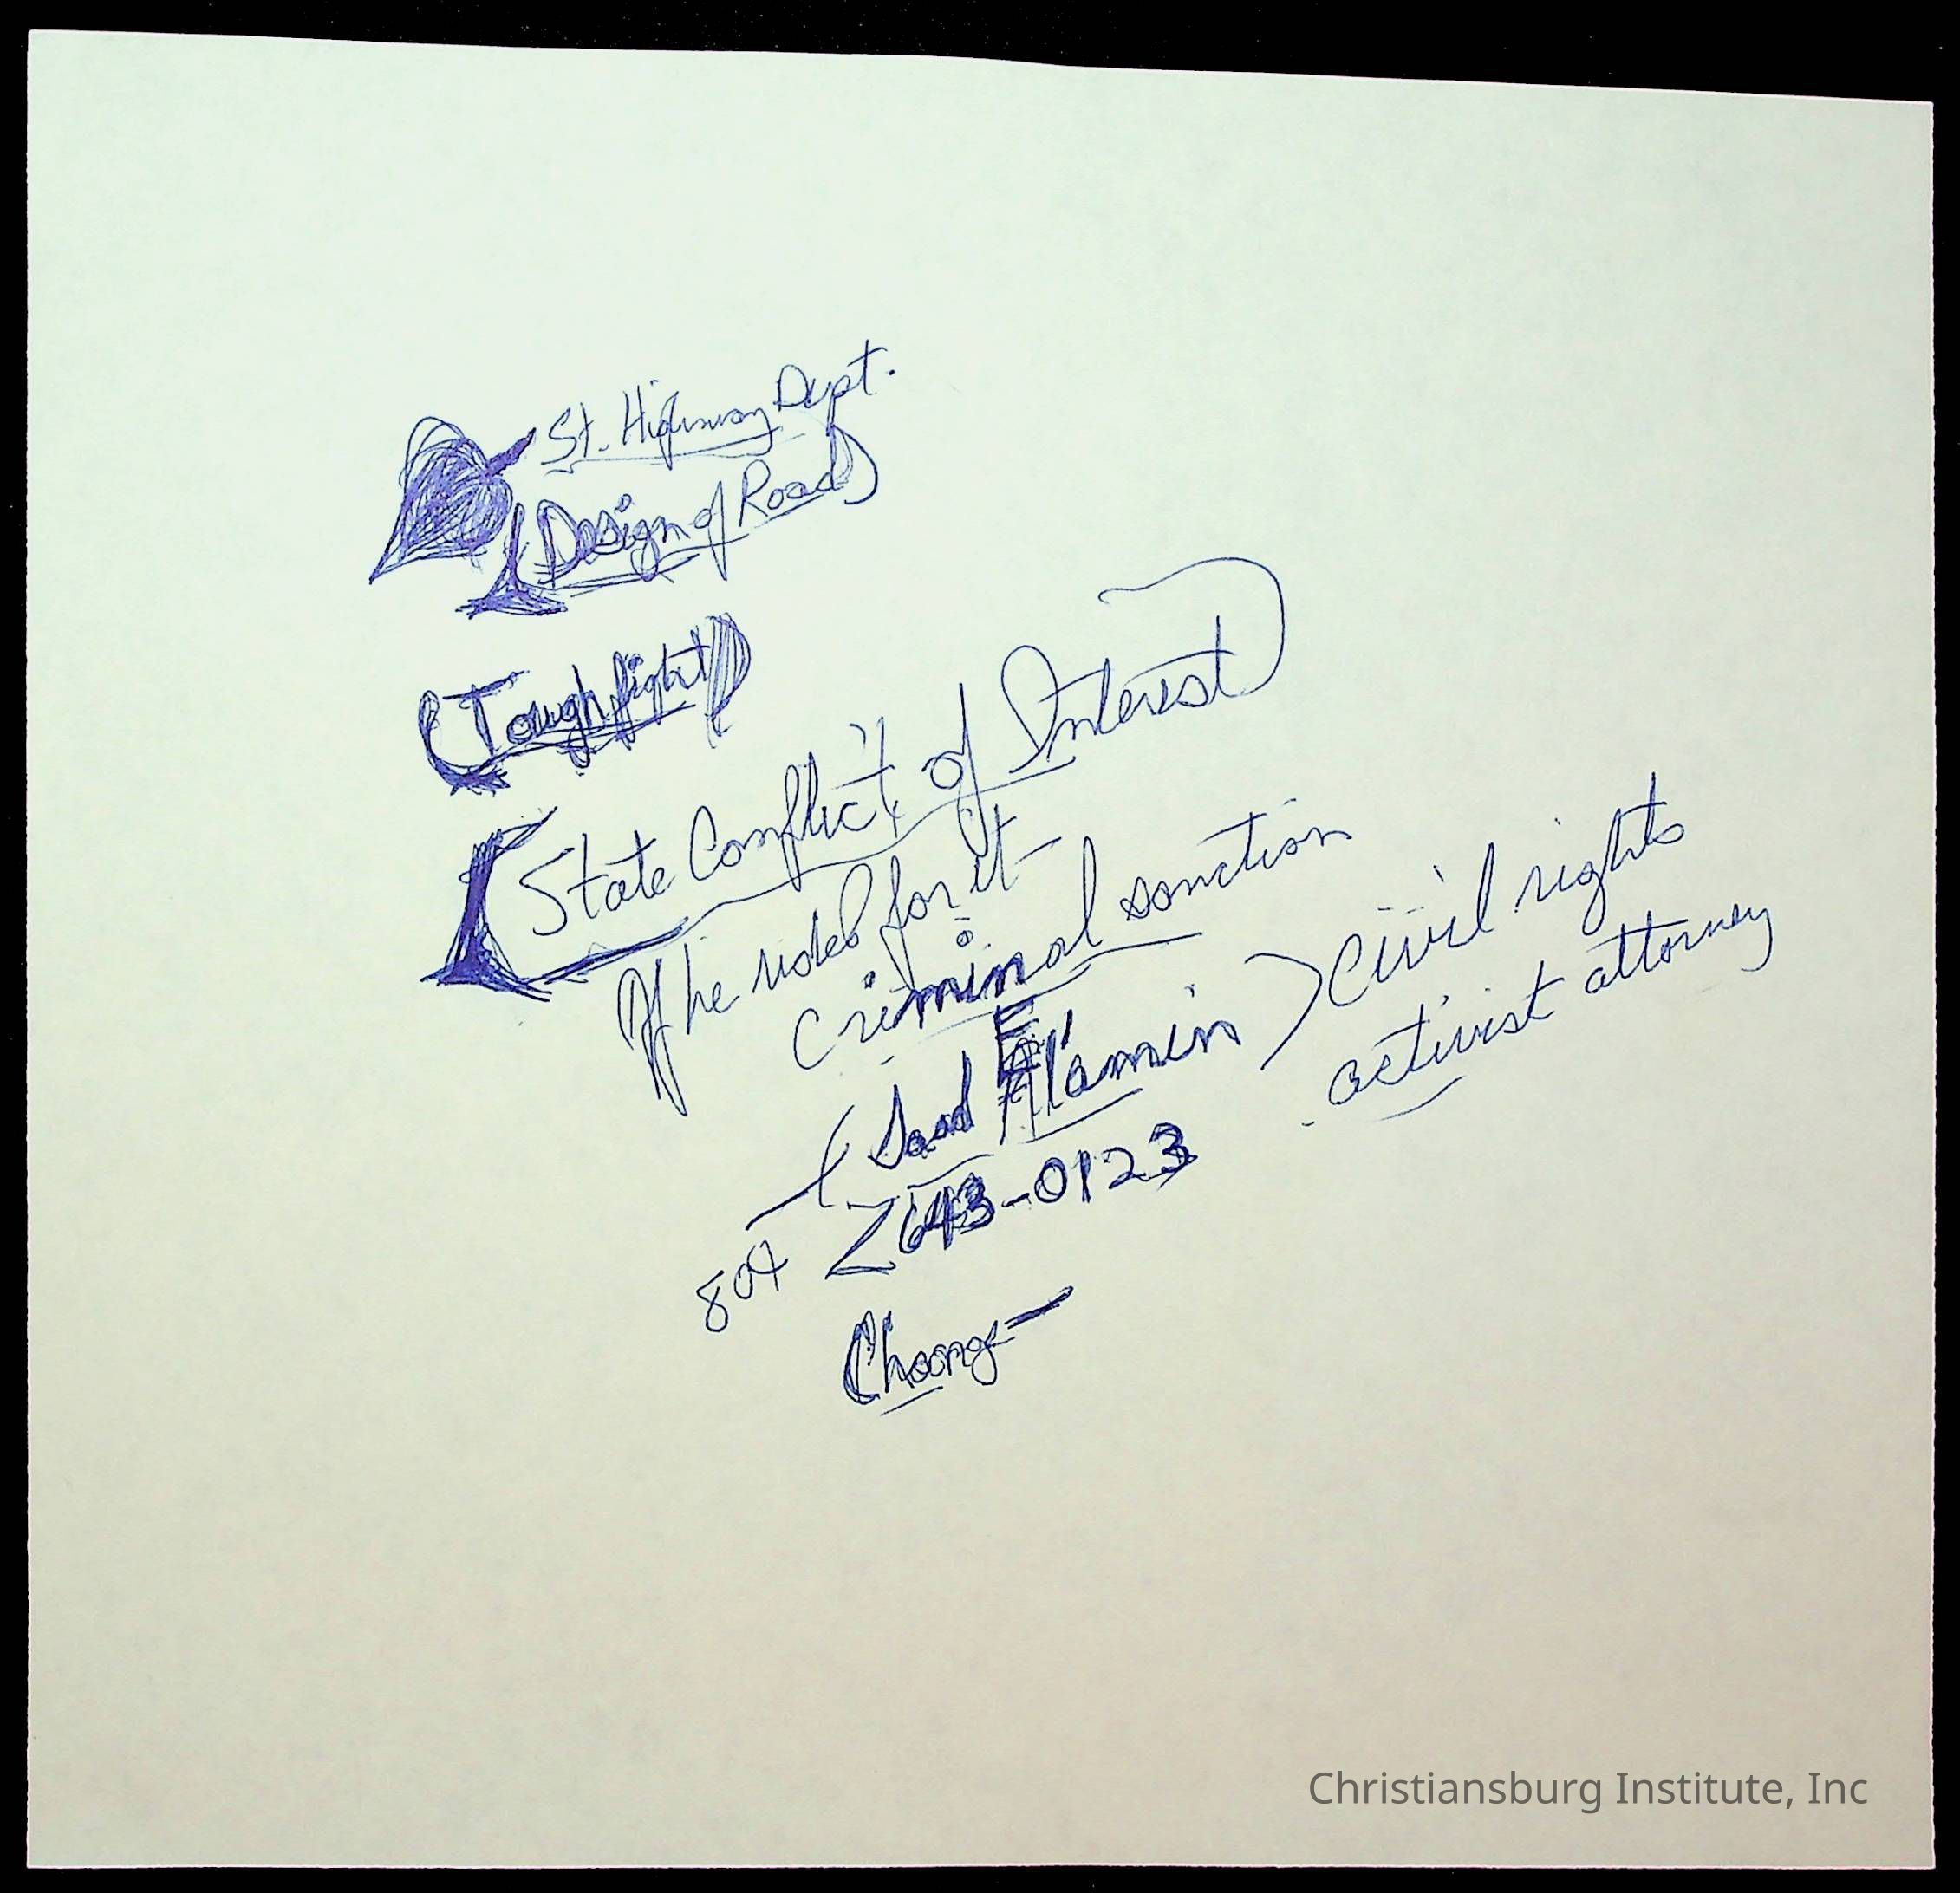 St. Highway Dept.
Design of Road)
(Tough fight)
State Conflict of Interest
If he rides for it
criminal sanction
(Saad El'amin) civil rights
activist attorney
804 643-0123
Change
Christiansburg Institute, Inc